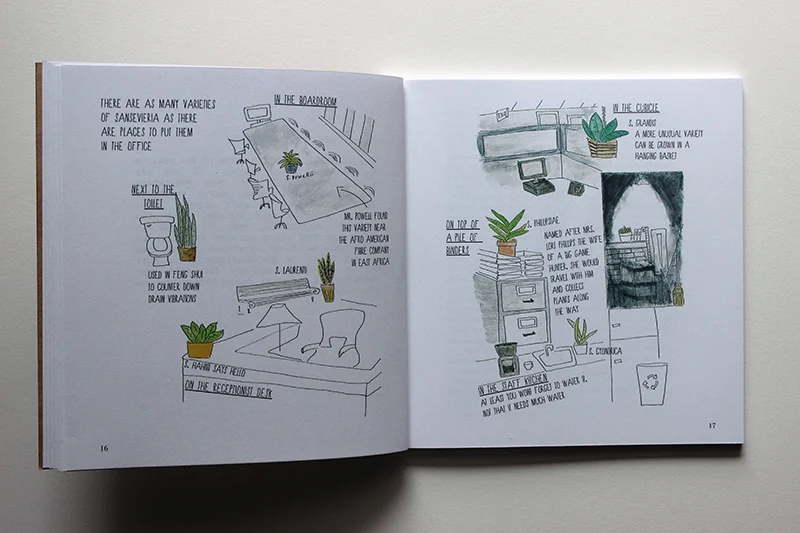 THERE ARE AS MANY VARIETIES
OF SANSEVIERIA AS THERE
ARE PLACES TO PUT THEM
IN THE OFFICE.
IN THE BOARDROOM
S. POWELLII
MR. POWELL FOUND
THIS VARIETY NEAR
THE AFRO AMERICAN
FIBRE COMPANY
IN EAST AFRICA
NEXT TO THE
TOILET
USED IN FENG SHUI
TO COUNTER DOWN
DRAIN VIBRATIONS
S. LAURENTI
S. HAHNI SAYS HELLO
ON THE RECEPTIONIST DESK
16
IN THE CUBICLE
S. GRANDIS
A MORE UNUSUAL VARIETY
CAN BE GROWN IN A
HANGING BASKET
ON TOP OF
A PILE OF
BINDERS
S. PHILLIPSIAE
NAMED AFTER MRS.
LORT PHILLIPS THE WIFE
OF A BIG GAME
HUNTER. SHE WOULD
TRAVEL WITH HIM
AND COLLECT
PLANTS ALONG
THE WAY
S. CYLINDRICA
IN THE STAFF KITCHEN
AT LEAST YOU WONT FORGET TO WATER IT.
NOT THAT IT NEEDS MUCH WATER
17